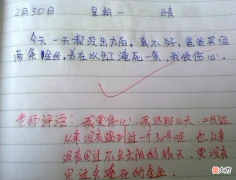 2月30日 星期一 晴
今天一天都没出太阳，真不好，爸爸买回
两条金鱼，在水缸淹死一条，我很伤心。
老师评语：我更伤心，我活那么大，二月还
从来没有过到过一个30号呢，也从
来没有见过不出太阳的晴天，更没有
见过会淹死的金鱼